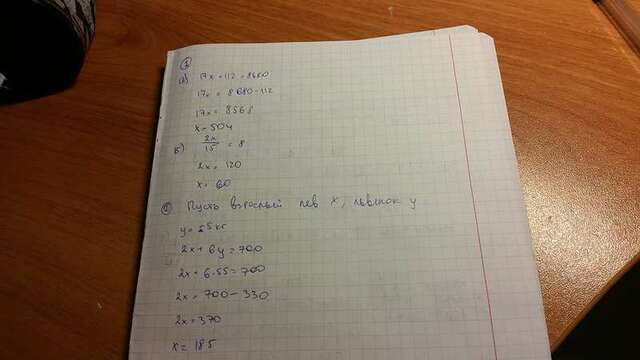 ①
а) 17x + 112 = 8680
17x = 8680 - 112
17x = 8568
x = 504
б) 2x/15 = 8
2x = 120
x = 60
② Пусть взрослый лев x, львенок y
y = 55 кг
2x + 6y = 700
2x + 6·55 = 700
2x = 700 - 330
2x = 370
x = 185